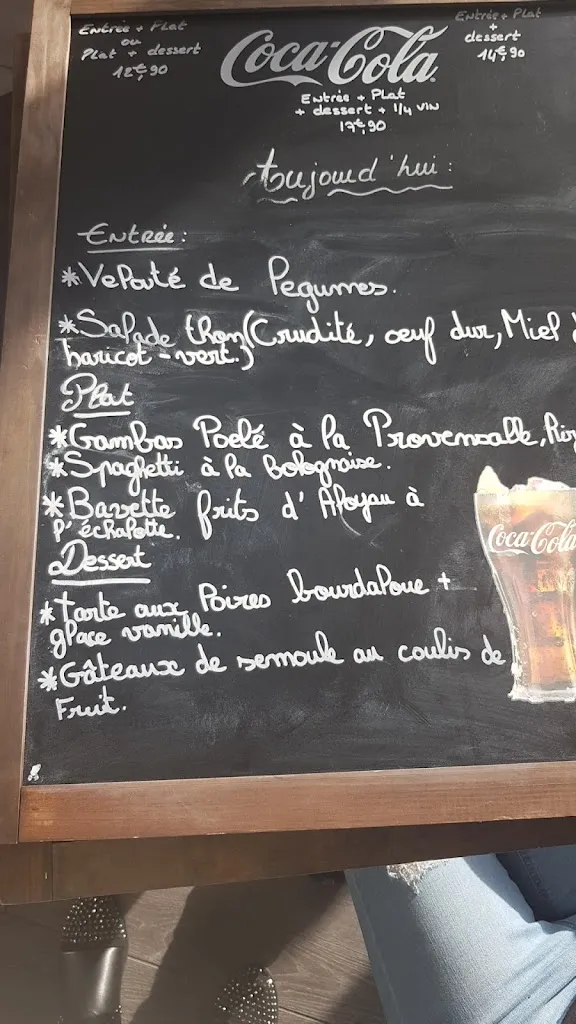 Entrée + Plat
ou
Plat + dessert
12€,90
Coca-Cola
Entrée + Plat
+ dessert + 1/4 VIN
17€,90
Entrée + Plat
+
dessert
14€,90
Aujourd'hui :
Entrée :
*Velouté de legumes.
*Salade thon (Crudité, oeuf dur, Miel
haricot-vert.)
Plat
*Gambas Poelé à la Provensalle, Riz
*Spaghetti à la bolognaise.
*Bavette frits d'Aloyau à
l'échalotte.
Dessert
*Tarte aux Poires bourdaloue +
glace vanille.
*Gâteaux de semoule au coulis de
Fruit.
Coca-Cola